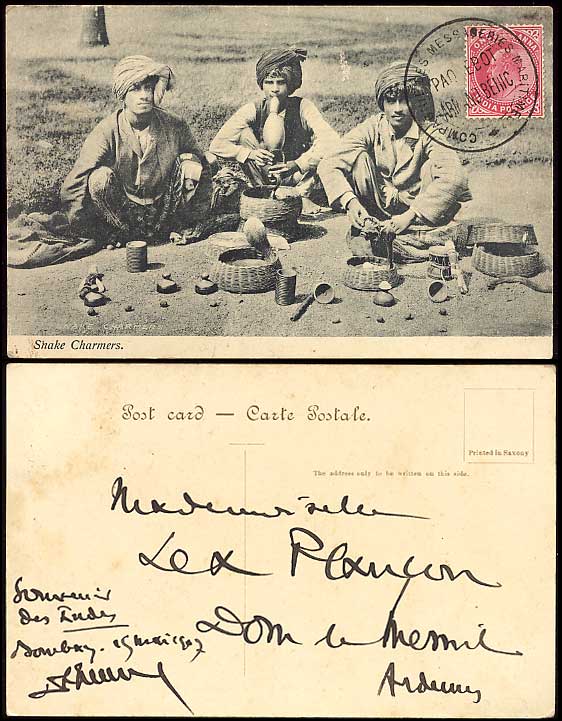 COMPAGNIES MESSAGERIES MARITIMES
PAQUEBOT
INDIA POSTAGE
SNAKE CHARMERS
Shake Charmers.
Post card — Carte Postale.
Printed in Saxony
The address only to be written on this side.
Mademoiselle
Lea Plançon
Souvenir
des Indes
Dom le Mesnil
Bombay
Ardennes